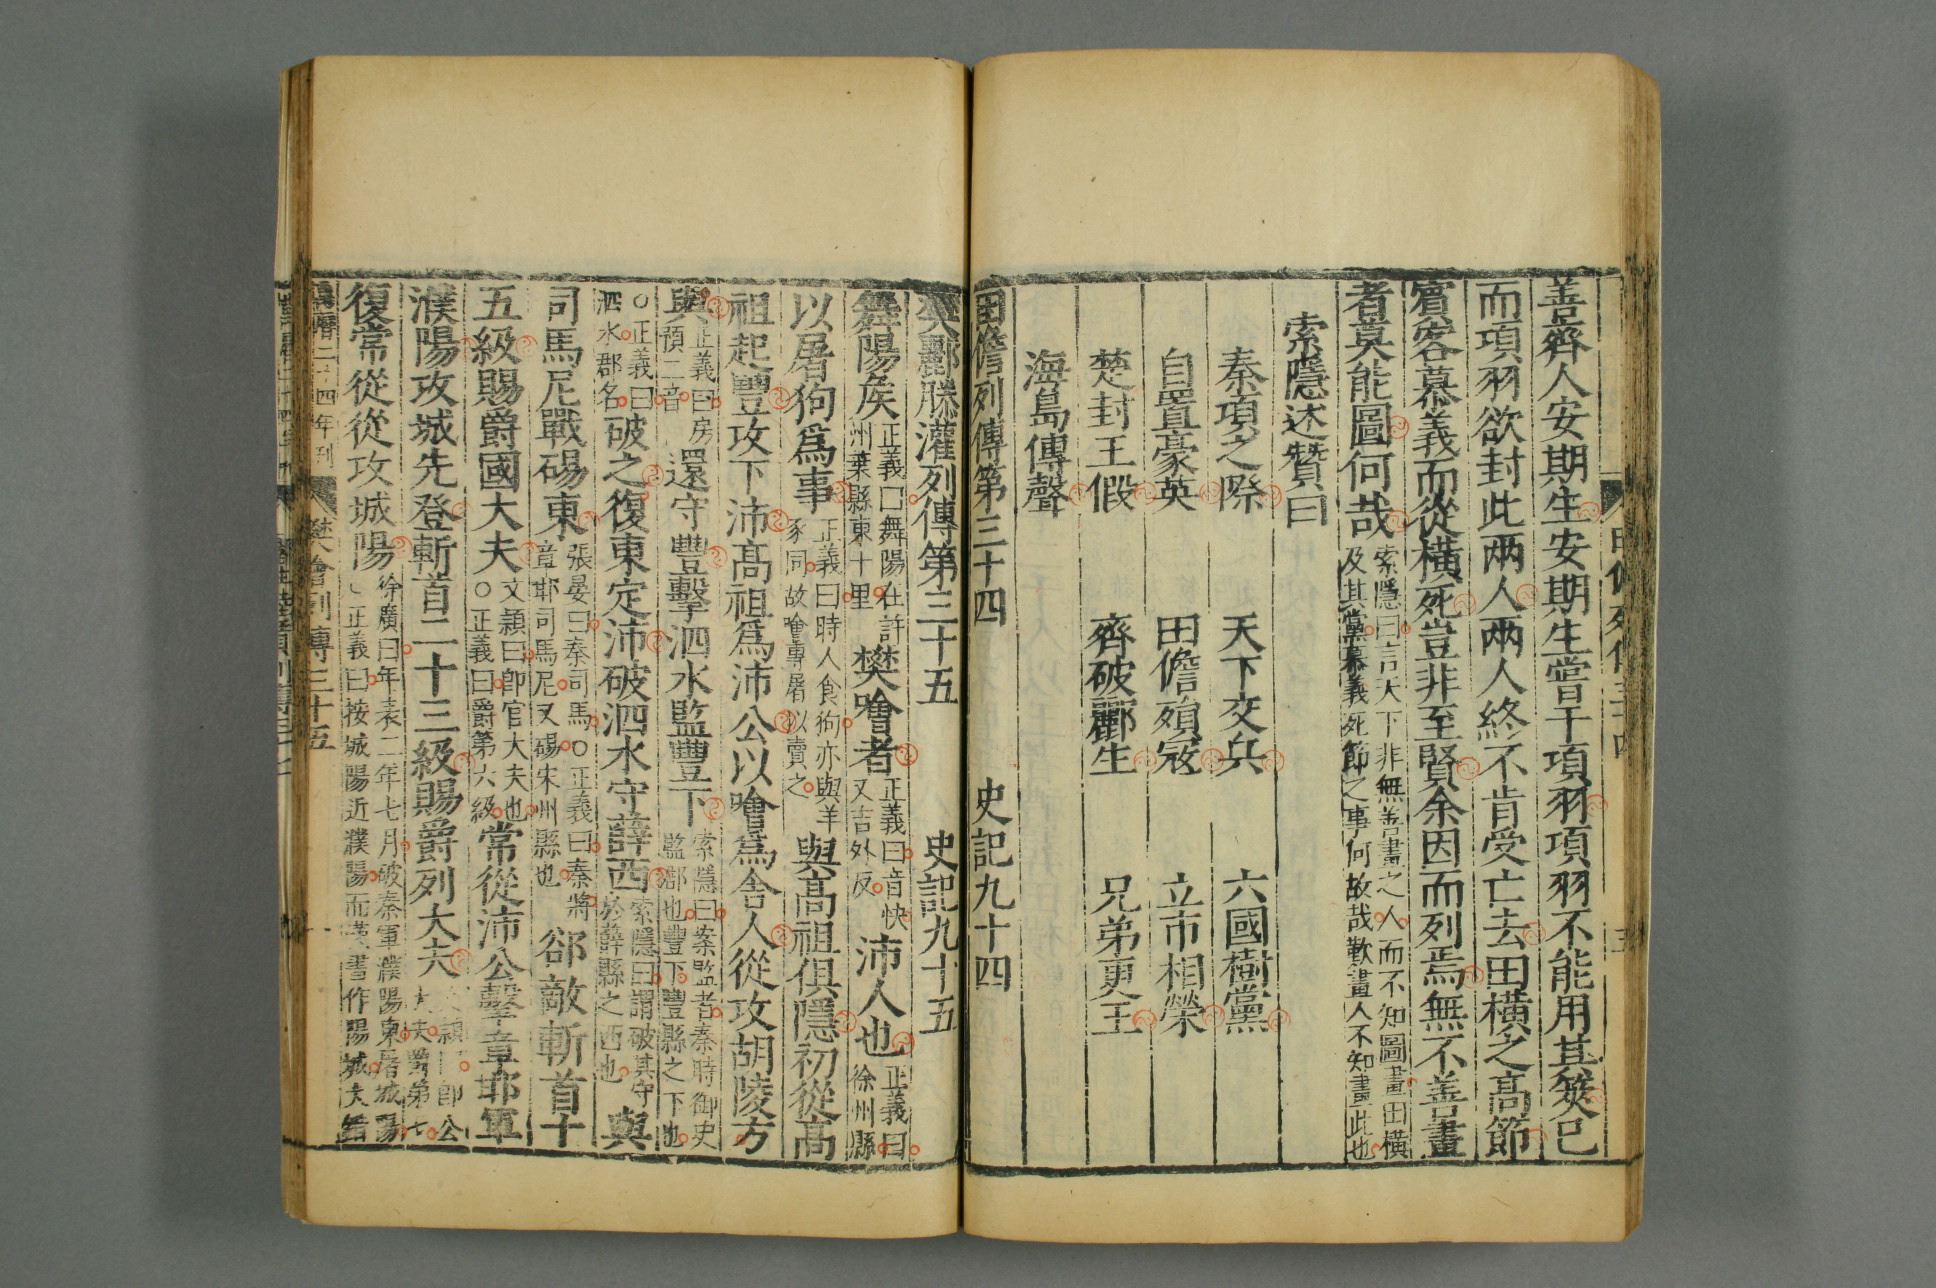 善齊人安期生安期生嘗干項羽項羽不能用其筴已
而項羽欲封此兩人兩人終不肯受亡去田橫之高節
賓客慕義而從橫死豈非至賢余因而列焉無不善畫
者莫能圖何哉
索隱曰言天下非無善畫之人而不知圖畫田橫
及其黨慕義死節之事何故哉歎畫人不知畫此也
索隱述贊曰
秦項之際 天下交兵 六國樹黨
自置豪英 田儋殞寇 立市相榮
楚封王假 齊破酈生 兄弟更王
海島傳聲
田儋列傳第三十四 史記九十四
樊酈滕灌列傳第三十五 史記九十五
舞陽侯
正義曰舞陽在許
州葉縣東十里
樊噲者
正義曰音快
又吉外反
沛人也
正義曰
徐州縣
以屠狗爲事
正義曰時人食狗亦與羊
豕同故噲專屠以賣之
與高祖俱隱初從高
祖起豐攻下沛高祖爲沛公以噲爲舍人從攻胡陵方
與
正義曰房
預二音
還守豐擊泗水監豐下
索隱曰案監者秦時御史
監郡也豐下豐縣之下也
○正義曰
泗水郡名
破之復東定沛破泗水守薛西
索隱曰謂破其守
於薛縣之西也
與
司馬𡰥戰碭東
張晏曰秦司馬○正義曰秦將
章邯司馬𡰥又碭宋州縣也
郤敵斬首十
五級賜爵國大夫
文穎曰卽官大夫也
○正義曰爵第六級
常從沛公擊章邯軍
濮陽攻城先登斬首二十三級賜爵列大夫
文穎曰卽公
大夫爵第七
復常從從攻城陽
徐廣曰年表二年七月破秦軍濮陽東屠城陽
○正義曰按城陽近濮陽而漢書作陽城大錯
萬曆二十四年刊 樊噲列傳三十五 一